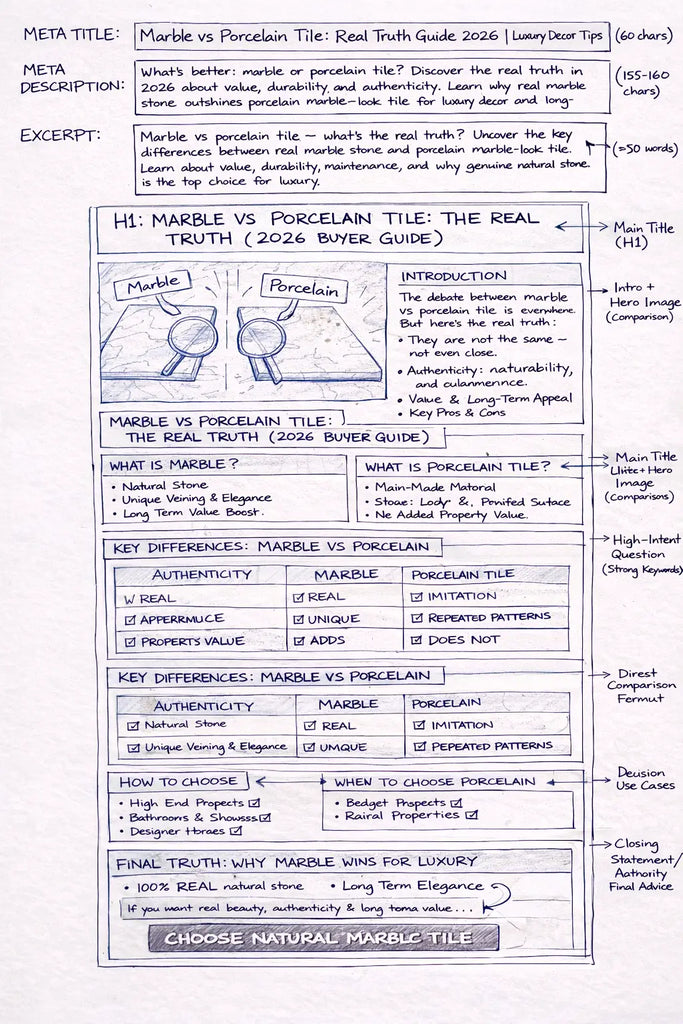 META TITLE:
Marble vs Porcelain Tile: Real Truth Guide 2026 | Luxury Decor Tips
(60 chars)
META
DESCRIPTION:
What's better: marble or porcelain tile? Discover the real truth in
2026 about value, durability, and authenticity. Learn why real marble
stone outshines porcelain marble-look tile for luxury decor and long-
(155-160
chars)
EXCERPT:
Marble vs porcelain tile — what's the real truth? Uncover the key
differences between real marble stone and porcelain marble-look tile.
Learn about value, durability, maintenance, and why genuine natural stone.
is the top choice for luxury.
(≈50 words)
H1: MARBLE VS PORCELAIN TILE: THE REAL
TRUTH (2026 BUYER GUIDE)
Main Title
(H1)
Marble
Porcelain
INTRODUCTION
The debate between marble
vs porcelain tile is everwhere.
But here's the real truth:
• They are not the same —
not even close.
• Authenticity: naturability,
and culanmennce.
• Value & Long-Term Appeal
• Key Pros & Cons
Intro +
Hero Image
(Comparison)
MARBLE VS PORCELAIN TILE:
THE REAL TRUTH (2026 BUYER GUIDE)
WHAT IS MARBLE?
• Natural Stone
• Unique Veining & Elegance
• Long Term Value Boost.
WHAT IS PORCELAIN TILE?
• Man-Made Matoral
• Stoae: Lody &, Ponifed Sutace
• Ne Added Property Value.
Main Title
+ Hero
Image
(Comparisons)
High-Intent
Question
(Strong Keywords)
KEY DIFFERENCES: MARBLE VS PORCELAIN
AUTHENTICITY MARBLE PORCELAIN TILE
W REAL ☑ REAL ☑ IMITATION
☑ APPERRMUCE ☑ UNIQUE ☑ REPEATED PATTERNS
☑ PROPERTS VALUE ☑ ADDS ☑ DOES NOT
KEY DIFFERENCES: MARBLE VS PORCELAIN
AUTHENTICITY MARBLE PORCELAIN
☑ Natural Stone ☑ REAL ☑ IMITATION
☑ Unique Veining & Elegance ☑ UMQUE ☑ PEPEATED PATTERNS
Direst
Comparison
Fermut
HOW TO CHOOSE
• High End Propects ☑
• Bathrooms & Showsss ☑
• Designer Hbraes ☑
WHEN TO CHOOSE PORCELAIN
• Bedget Pnspects ☑
• Rairal Properties ☑
Deusion
Use Cases
FINAL TRUTH: WHY MARBLE WINS FOR LUXURY
• 100% REAL natural stone • Long Term Elegance
If you want real beauty, authenticity & long toma value...
CHOOSE NATURAL MARBLC TILE
Closing
Statement/
Aathority
Final Advice